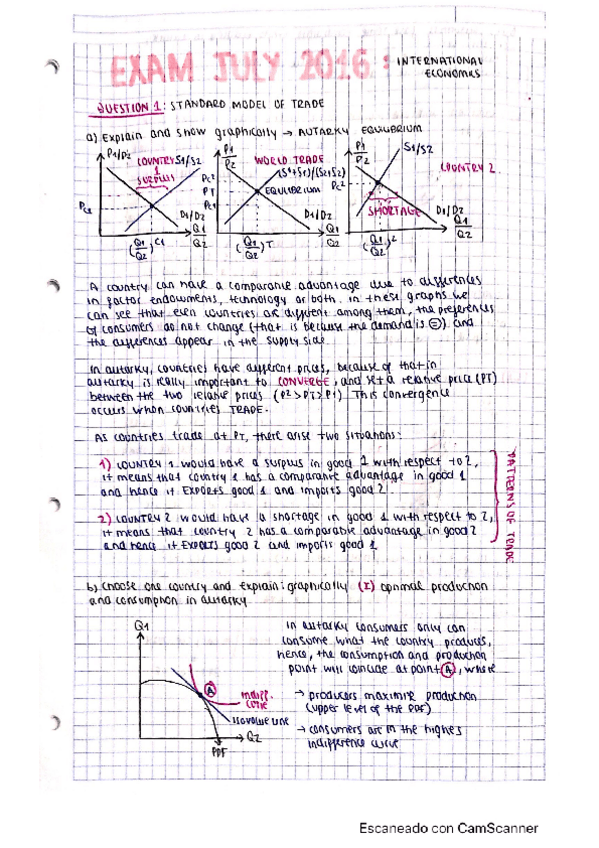 EXAM JULY 2016: INTERNATIONAL
ECONOMICS
QUESTION 1: STANDARD MODEL OF TRADE
a) Explain and show graphically → AUTARKY EQUILIBRIUM
P1/P2
COUNTRY 1
SURPLUS
S1/S2
PC1
D1/D2
Q1
Q2
(Q1/Q2)C1
P1
P2
WORLD TRADE
(S1+S1)/(S2+S2)
PC2
PT
PC1
EQUILIBRIUM
D1/D2
Q1
Q2
(Q1/Q2)T
P1
P2
S1/S2
COUNTRY 2
PC2
SHORTAGE
D1/D2
Q1
Q2
(Q1/Q2)2
A country can have a comparable advantage due to differences
in factor endowments, technology or both. in these graphs we
can see that even countries are different among them, the preferences
of consumers do not change (that is because the demand is =) and
the differences appear in the supply side.
In autarky, countries have different prices, because of that in
autarky is really important to CONVERGE, and set a relative price (PT)
between the two relative prices (P2>PT>P1) This convergence
occurs when countries TRADE.
As countries trade at PT, there arise two situations:
1) COUNTRY 1 would have a surplus in good 1 with respect to 2,
it means that country 1 has a comparable advantage in good 1
and hence it EXPORTS good 1 and imports good 2.
2) COUNTRY 2 would have a shortage in good 1 with respect to 2,
it means that country 2 has a comparable advantage in good 2
and hence it EXPORTS good 2 and imports good 1
PATTERNS OF TRADE
b) choose one country and explain: graphically (I) optimal production
and consumption in autarky
Q1
A
indiff.
curve
Isovalue line
Q2
PPF
in autarky consumers only can
consume what the country produces,
hence, the consumption and production
point will coincide at point A, where
→ producers maximize production
(upper level of the PPF)
→ consumers are in the highes
indifference curve
Escaneado con CamScanner